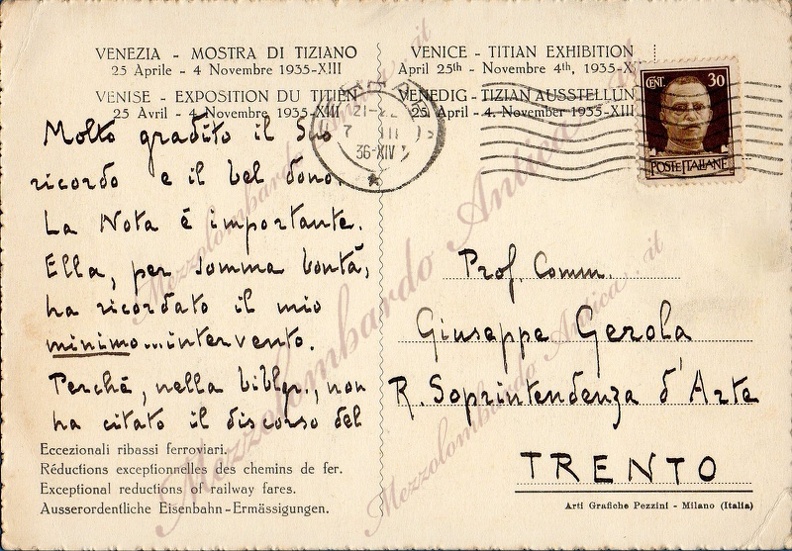 VENEZIA - MOSTRA DI TIZIANO
25 Aprile - 4 Novembre 1935-XIII
VENISE - EXPOSITION DU TITIEN
25 Avril - 4 Novembre 1935-XIII
VENICE - TITIAN EXHIBITION
April 25th - Novembre 4th, 1935-X
VENEDIG - TIZIAN AUSSTELLUN
25. April - 4. November 1935-XIII
CENT. 30
POSTE ITALIANE
21-2
7 III
36-XIV
Molto gradito il Suo
ricordo e il bel dono.
La Nota é importante.
Ella, per somma bontà,
ha ricordato il mio
minimo...intervento.
Perché, nella bibligr., non
ha citato il discorso del
Eccezionali ribassi ferroviari.
Réductions exceptionnelles des chemins de fer.
Exceptional reductions of railway fares.
Ausserordentliche Eisenbahn-Ermässigungen.
Prof. Comm.
Giuseppe Gerola
R. Soprintendenza d'Arte
TRENTO
Arti Grafiche Pezzini - Milano (Italia)
Mezzolombardo Antica.it
Mezzolombardo Antica.it
Mezzolombardo Antica.it